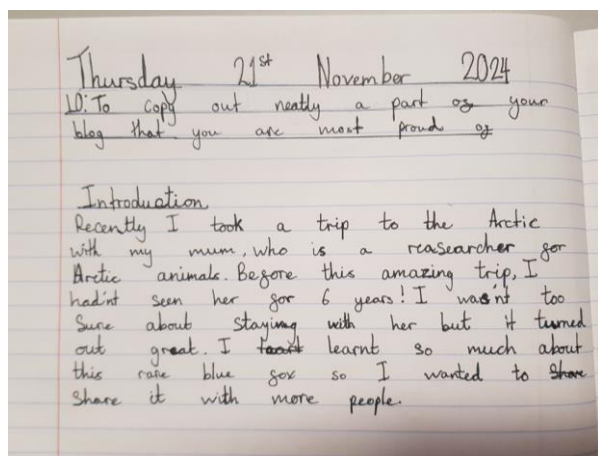 Thursday 21st November 2024
LO: To copy out neatly a part of your
blog that you are most proud of
Introduction
Recently I took a trip to the Arctic
with my mum, who is a reasearcher for
Arctic animals. Before this amazing trip, I
had'nt seen her for 6 years! I was'nt too
sure about staying with her but it turned
out great. I learnt so much about
this rare blue fox so I wanted to share
share it with more people.